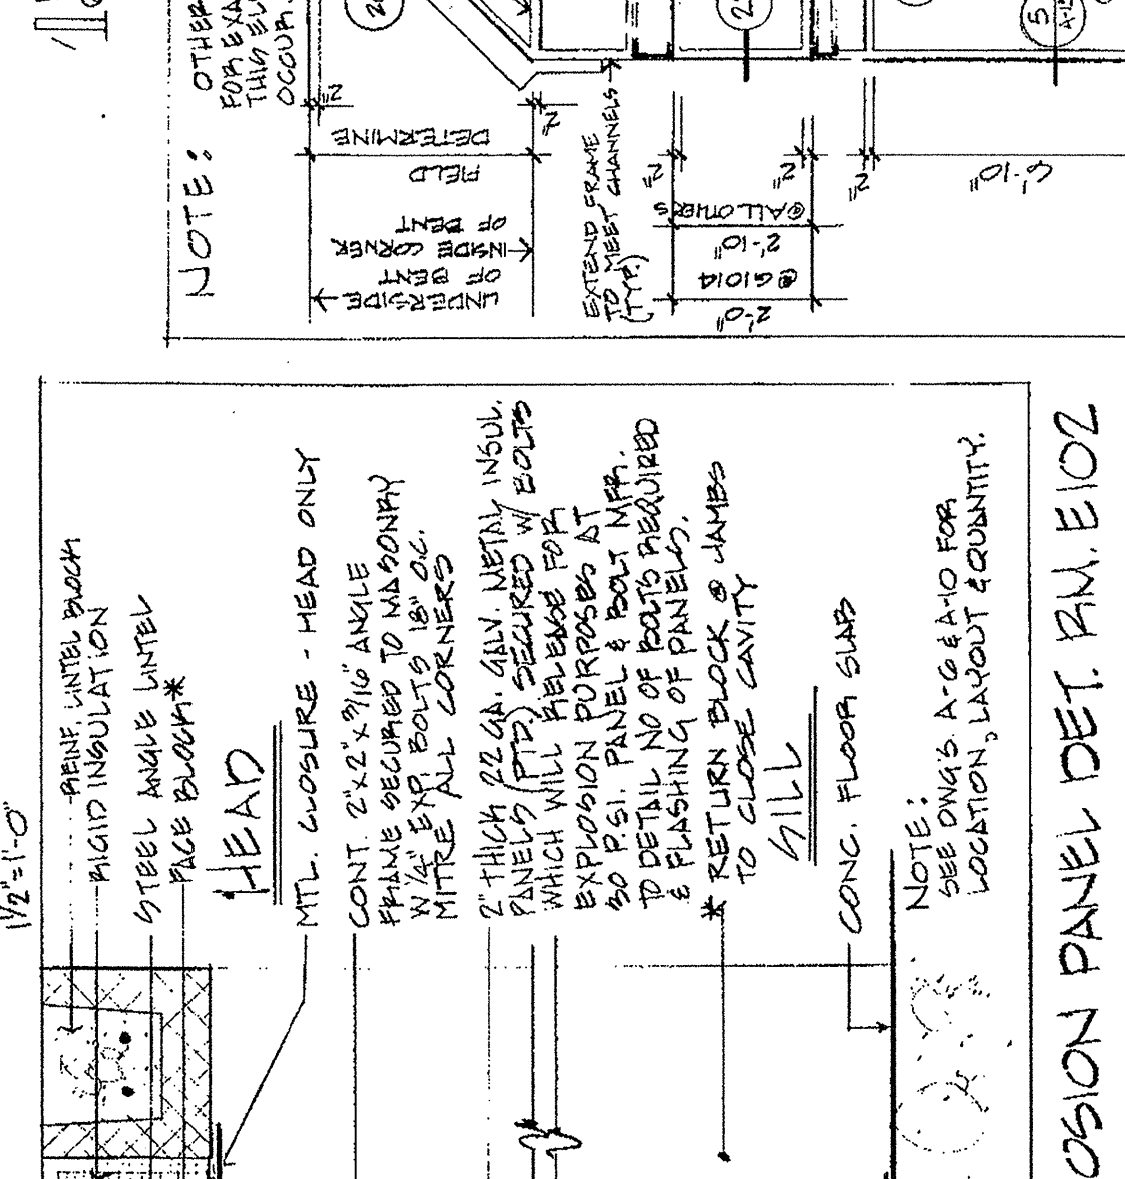 1 1/2"=1'-0"
REINF. LINTEL BLOCK
RIGID INSULATION
STEEL ANGLE LINTEL
FACE BLOCK*
HEAD
MTL. CLOSURE - HEAD ONLY
CONT. 2"x2"x3/16" ANGLE
FRAME SECURED TO MASONRY
W/ 1/4" EXP. BOLTS 18" O.C.
MITRE ALL CORNERS
2" THICK 22 GA. GALV. METAL INSUL.
PANELS (PTD.) SECURED W/ BOLTS
WHICH WILL RELEASE FOR
EXPLOSION PURPOSES AT
30 P.S.I. PANEL & BOLT MFR.
TO DETAIL NO OF BOLTS REQUIRED
& FLASHING OF PANELS.
* RETURN BLOCK @ JAMBS
TO CLOSE CAVITY
SILL
CONC. FLOOR SLAB
NOTE:
SEE DWG'S. A-6 & A-10 FOR
LOCATION, LAYOUT & QUANTITY.
OSION PANEL DET. RM. E102
NOTE:
OTHER
FOR EXA
THIS EL
OCCUR.
UNDERSIDE
OF BENT
INSIDE CORNER
OF BENT
FIELD
DETERMINE
2"
2"
EXTEND FRAME
TO MEET CHANNELS
(TYP.)
2'-0"
@G101A
2'-10"
@ALL OTHERS
2"
2"
2"
6'-10"
5